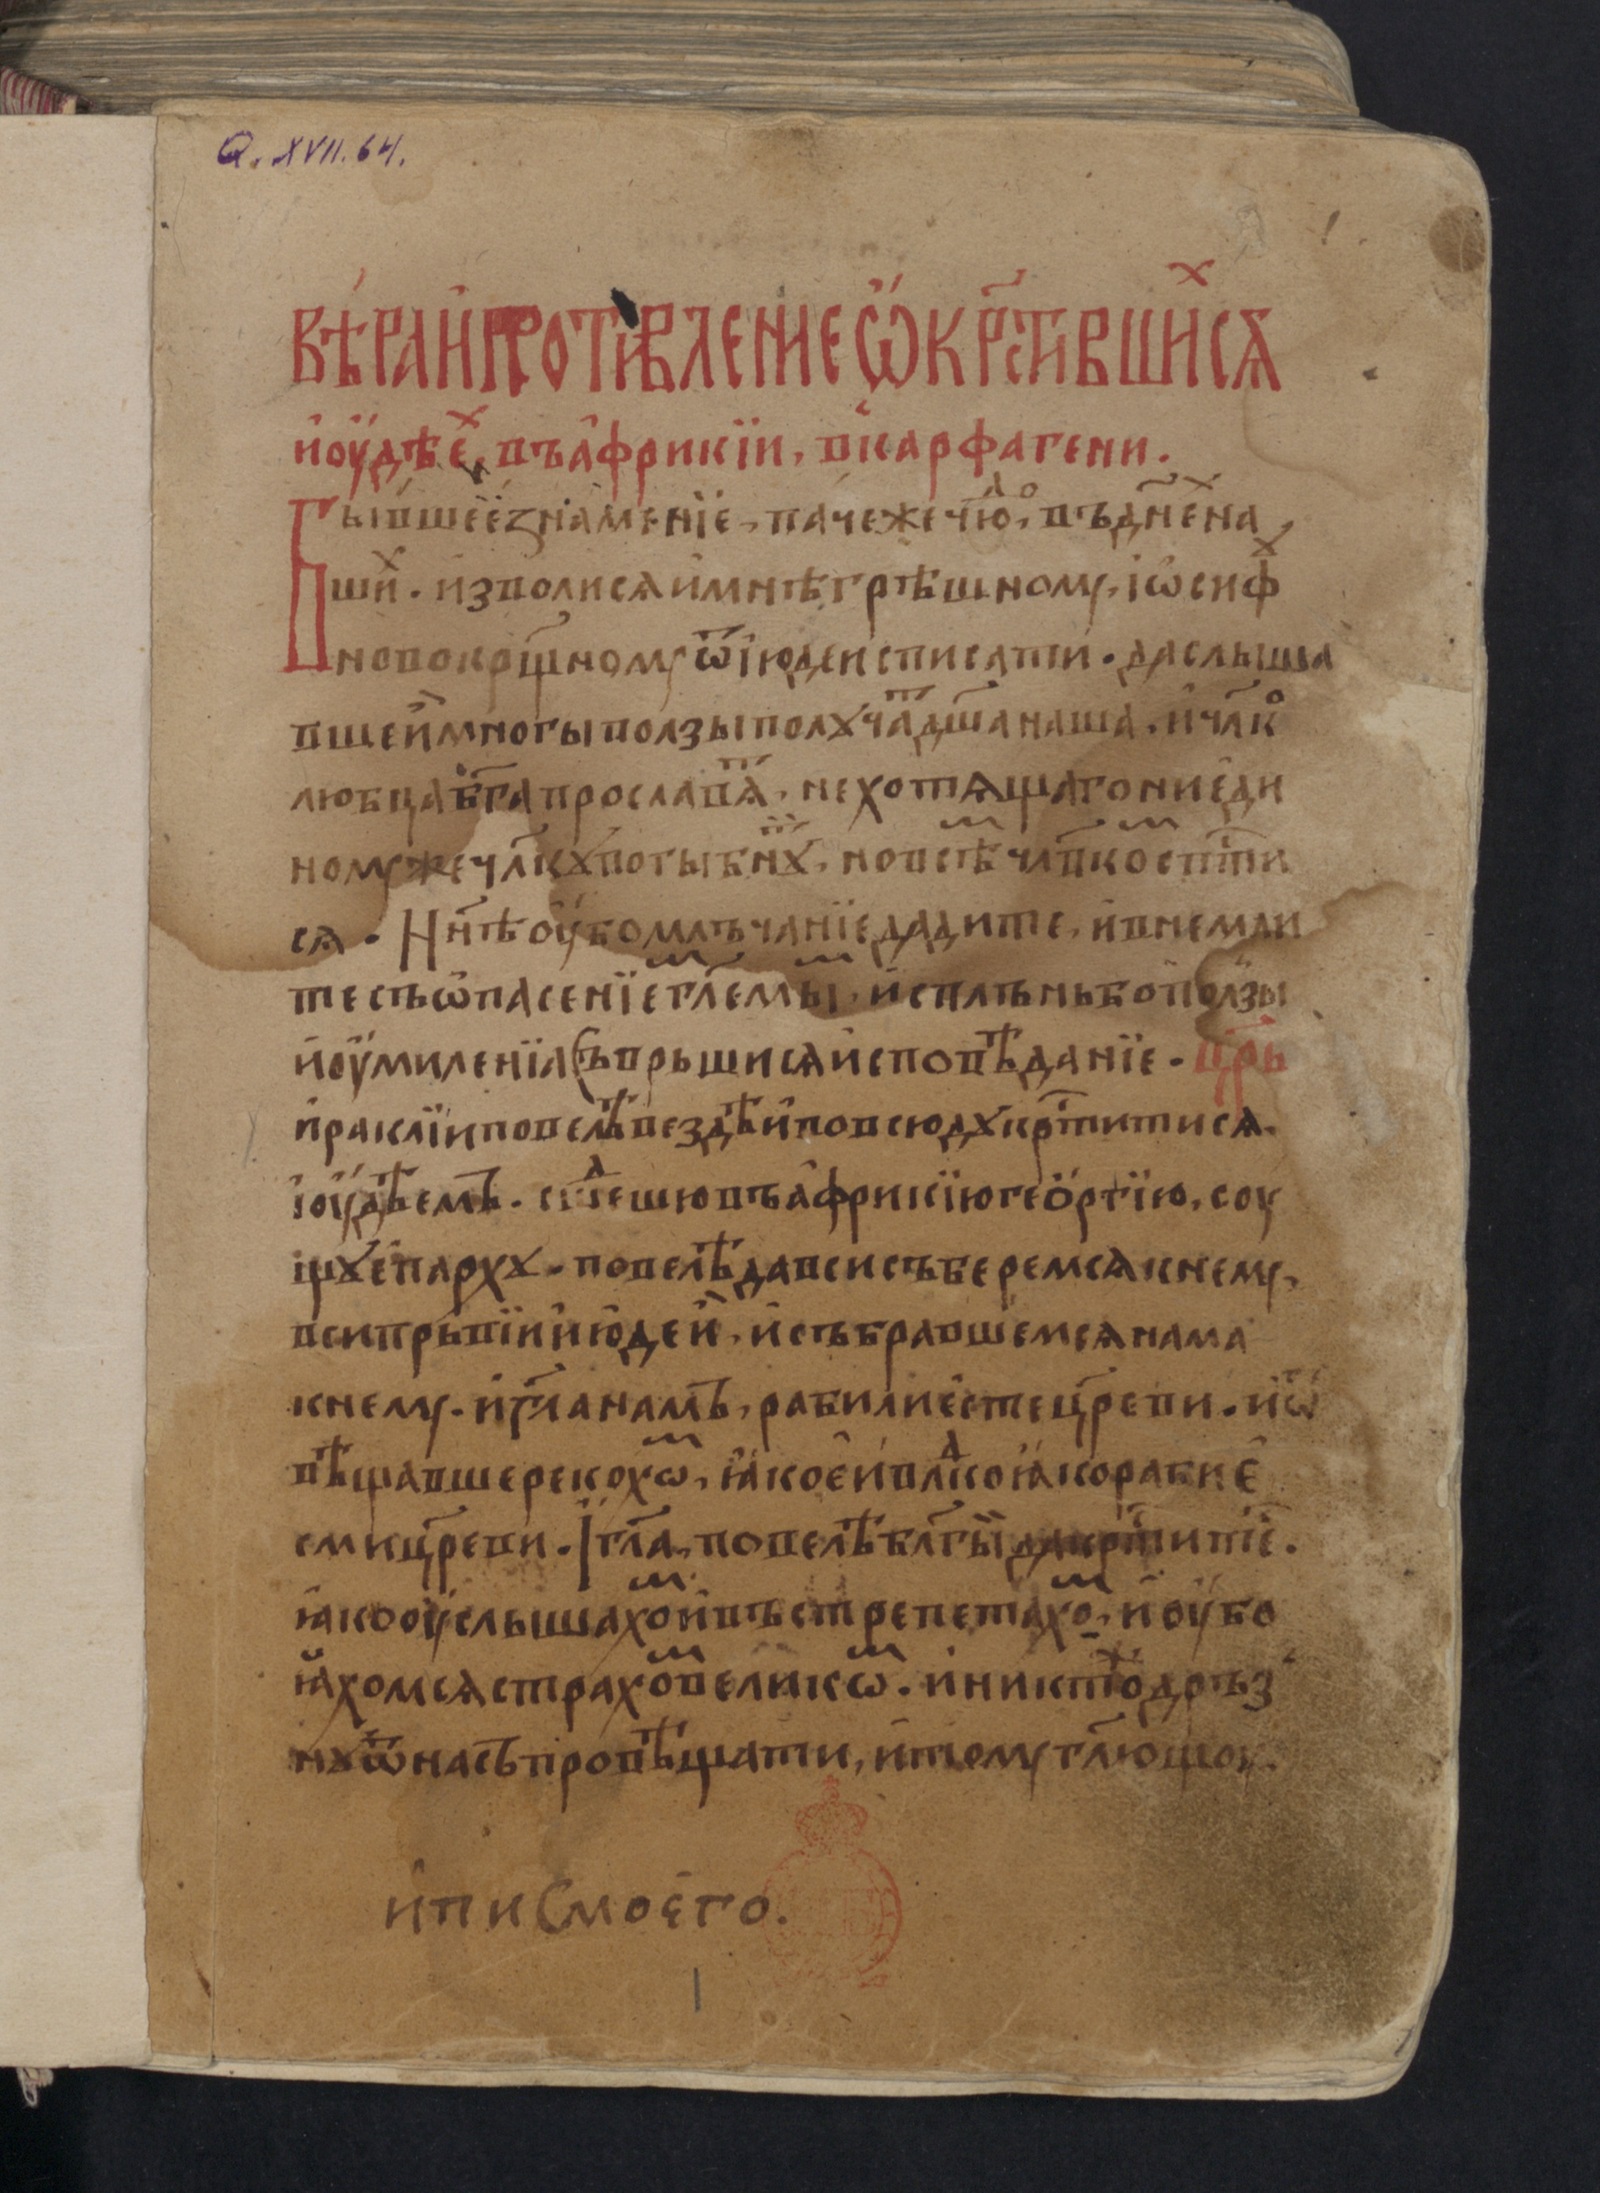 Q. XVII. 64.
ВѢРА И ПРОТИВЛЕНИЕ Ѡ КР҃СТИВШИⷯСѧ
иꙋдѣеⷯ. въ африкїи, в карфагени.
Бывшее ꙁнаменїе, паче же чюⷣⷪ, въ дн҃еⷯ на
шиⷯ. изволися и мнѣ грѣшному, іѡсифꙋ
новокр҃щному ѿ июдеи списати. да слыша
вше и многы ползы полꙋчаⷮ дш҃а наша. и чл҃кⷪ
любца бг҃а прославѧⷮ, не хотѧщаго ни еди
ному же чл҃кꙋ погыбнꙋⷮⷤ, но всѣⷨ чл҃вкоⷨ спⷭ҇ти
сѧ. Нн҃ѣ оубо млъчанїе дадите, и внемли
те съ ѡпасенїеⷨ гл҃емыⷨ, исплънь бо ползы
и оумиленїа съврьшися исповѣданїе. цр҃ь
ираклїи повелѣ вездѣ и повсюдꙋ кр҃титися.
іꙋдѣемъ. сшеⷣшю въ африкїю геѡргїю, соу
щꙋ епархꙋ. повелѣ да вси съберемся к нему,
вси прьвїи июдеи, и събравшемся нама
к нему. и гл҃а намъ, раби ли есте цр҃еви. и ѿ
вѣщавше рекохѡⷨ, ꙗко еи влⷣко ꙗко раби е
сми цр҃еви. И гл҃а, повелѣ бл҃гыи да кр҃титⷭ҇е.
ꙗко оуслышахоⷨ и въстрепетахоⷨ, и оубо
ꙗхомся страхоⷨ великѡⷨ. и никтоⷤ дръз
нꙋ ѿ насъ провѣщати, и тому гл҃ющоу.
и пи смоего.
1